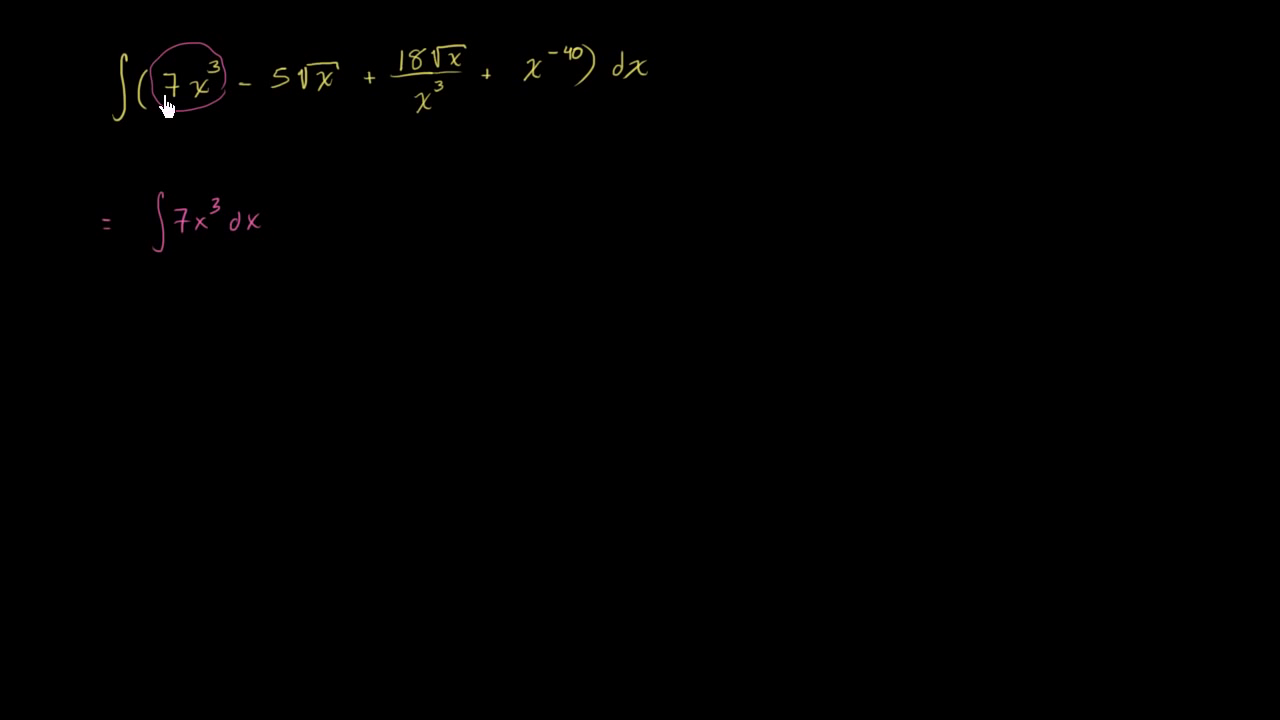 ∫(7x³ - 5√x + 18√x/x³ + x⁻⁴⁰) dx
= ∫7x³ dx